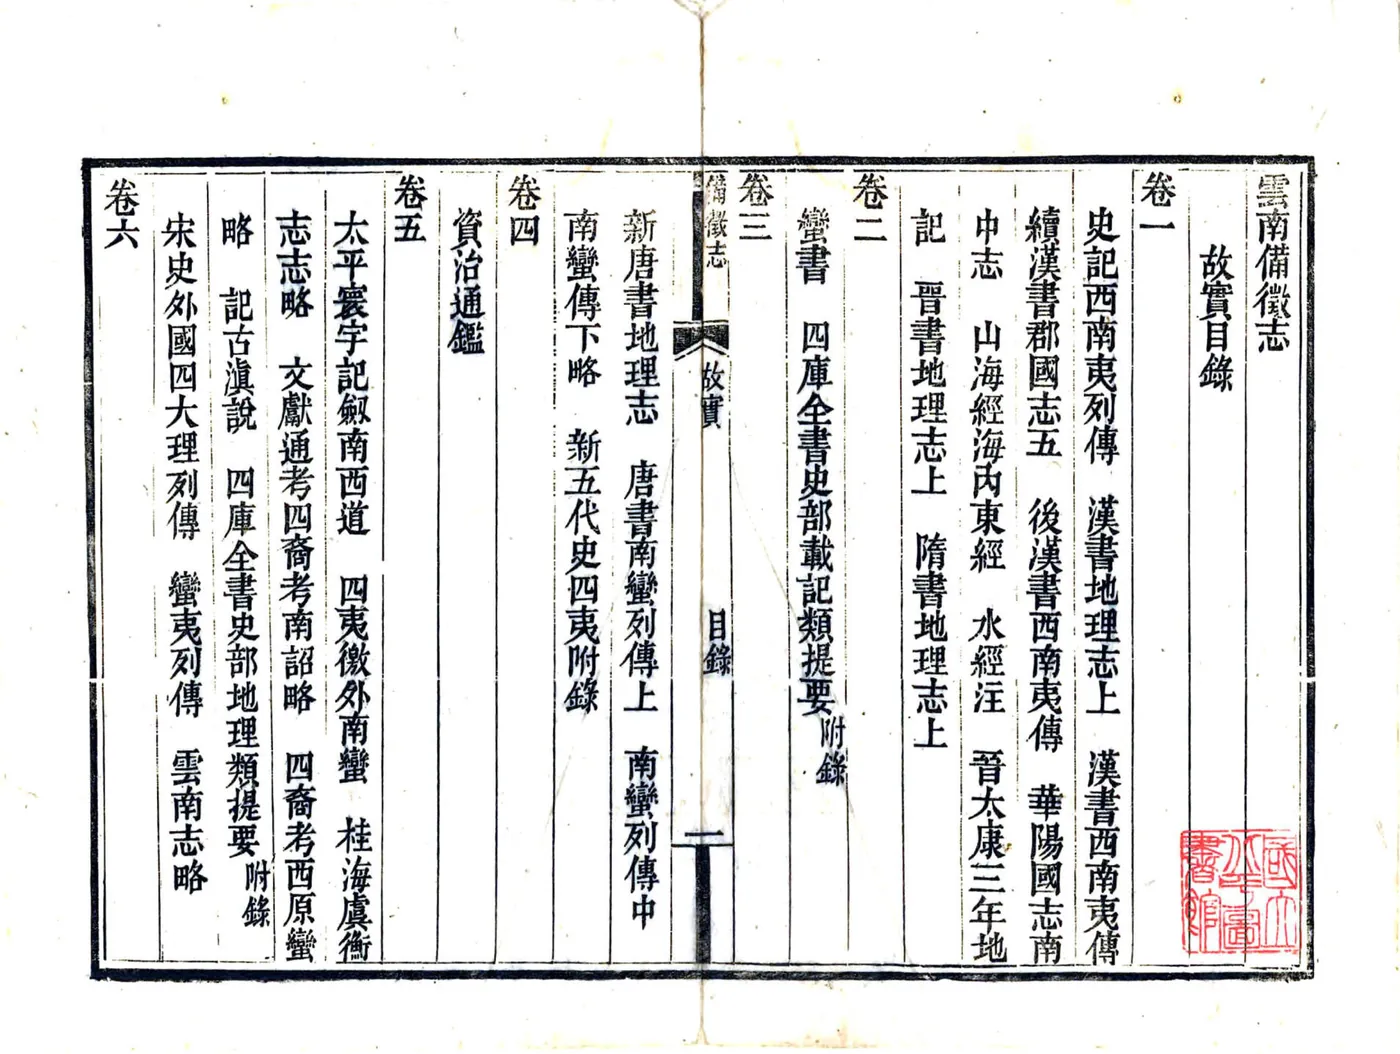 雲南備徵志
故實目錄
卷一
史記西南夷列傳 漢書地理志上 漢書西南夷傳
續漢書郡國志五 後漢書西南夷傳 華陽國志南
中志 山海經海內東經 水經注 晉太康三年地
記 晉書地理志上 隋書地理志上
卷二
蠻書 四庫全書史部載記類提要附錄
卷三
備徵志 故實 目錄 一
新唐書地理志 唐書南蠻列傳上 南蠻列傳中
南蠻傳下略 新五代史四夷附錄
卷四
資治通鑑
卷五
太平寰宇記劔南西道 四夷徼外南蠻 桂海虞衡
志志略 文獻通考四裔考南詔略 四裔考西原蠻
略 記古滇說 四庫全書史部地理類提要附錄
宋史外國四大理列傳 蠻夷列傳 雲南志略
卷六
國立北平圖書館